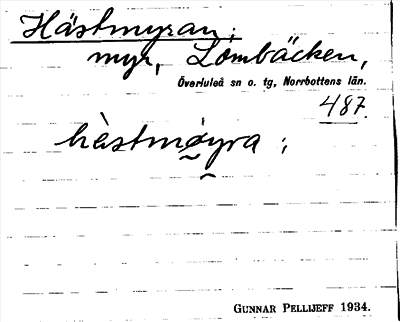 Hästmyran;
myr, Lombäcken,
Överluleå sn o. tg, Norrbottens län.
487.
hàstmøyra ;
GUNNAR PELLIJEFF 1934.